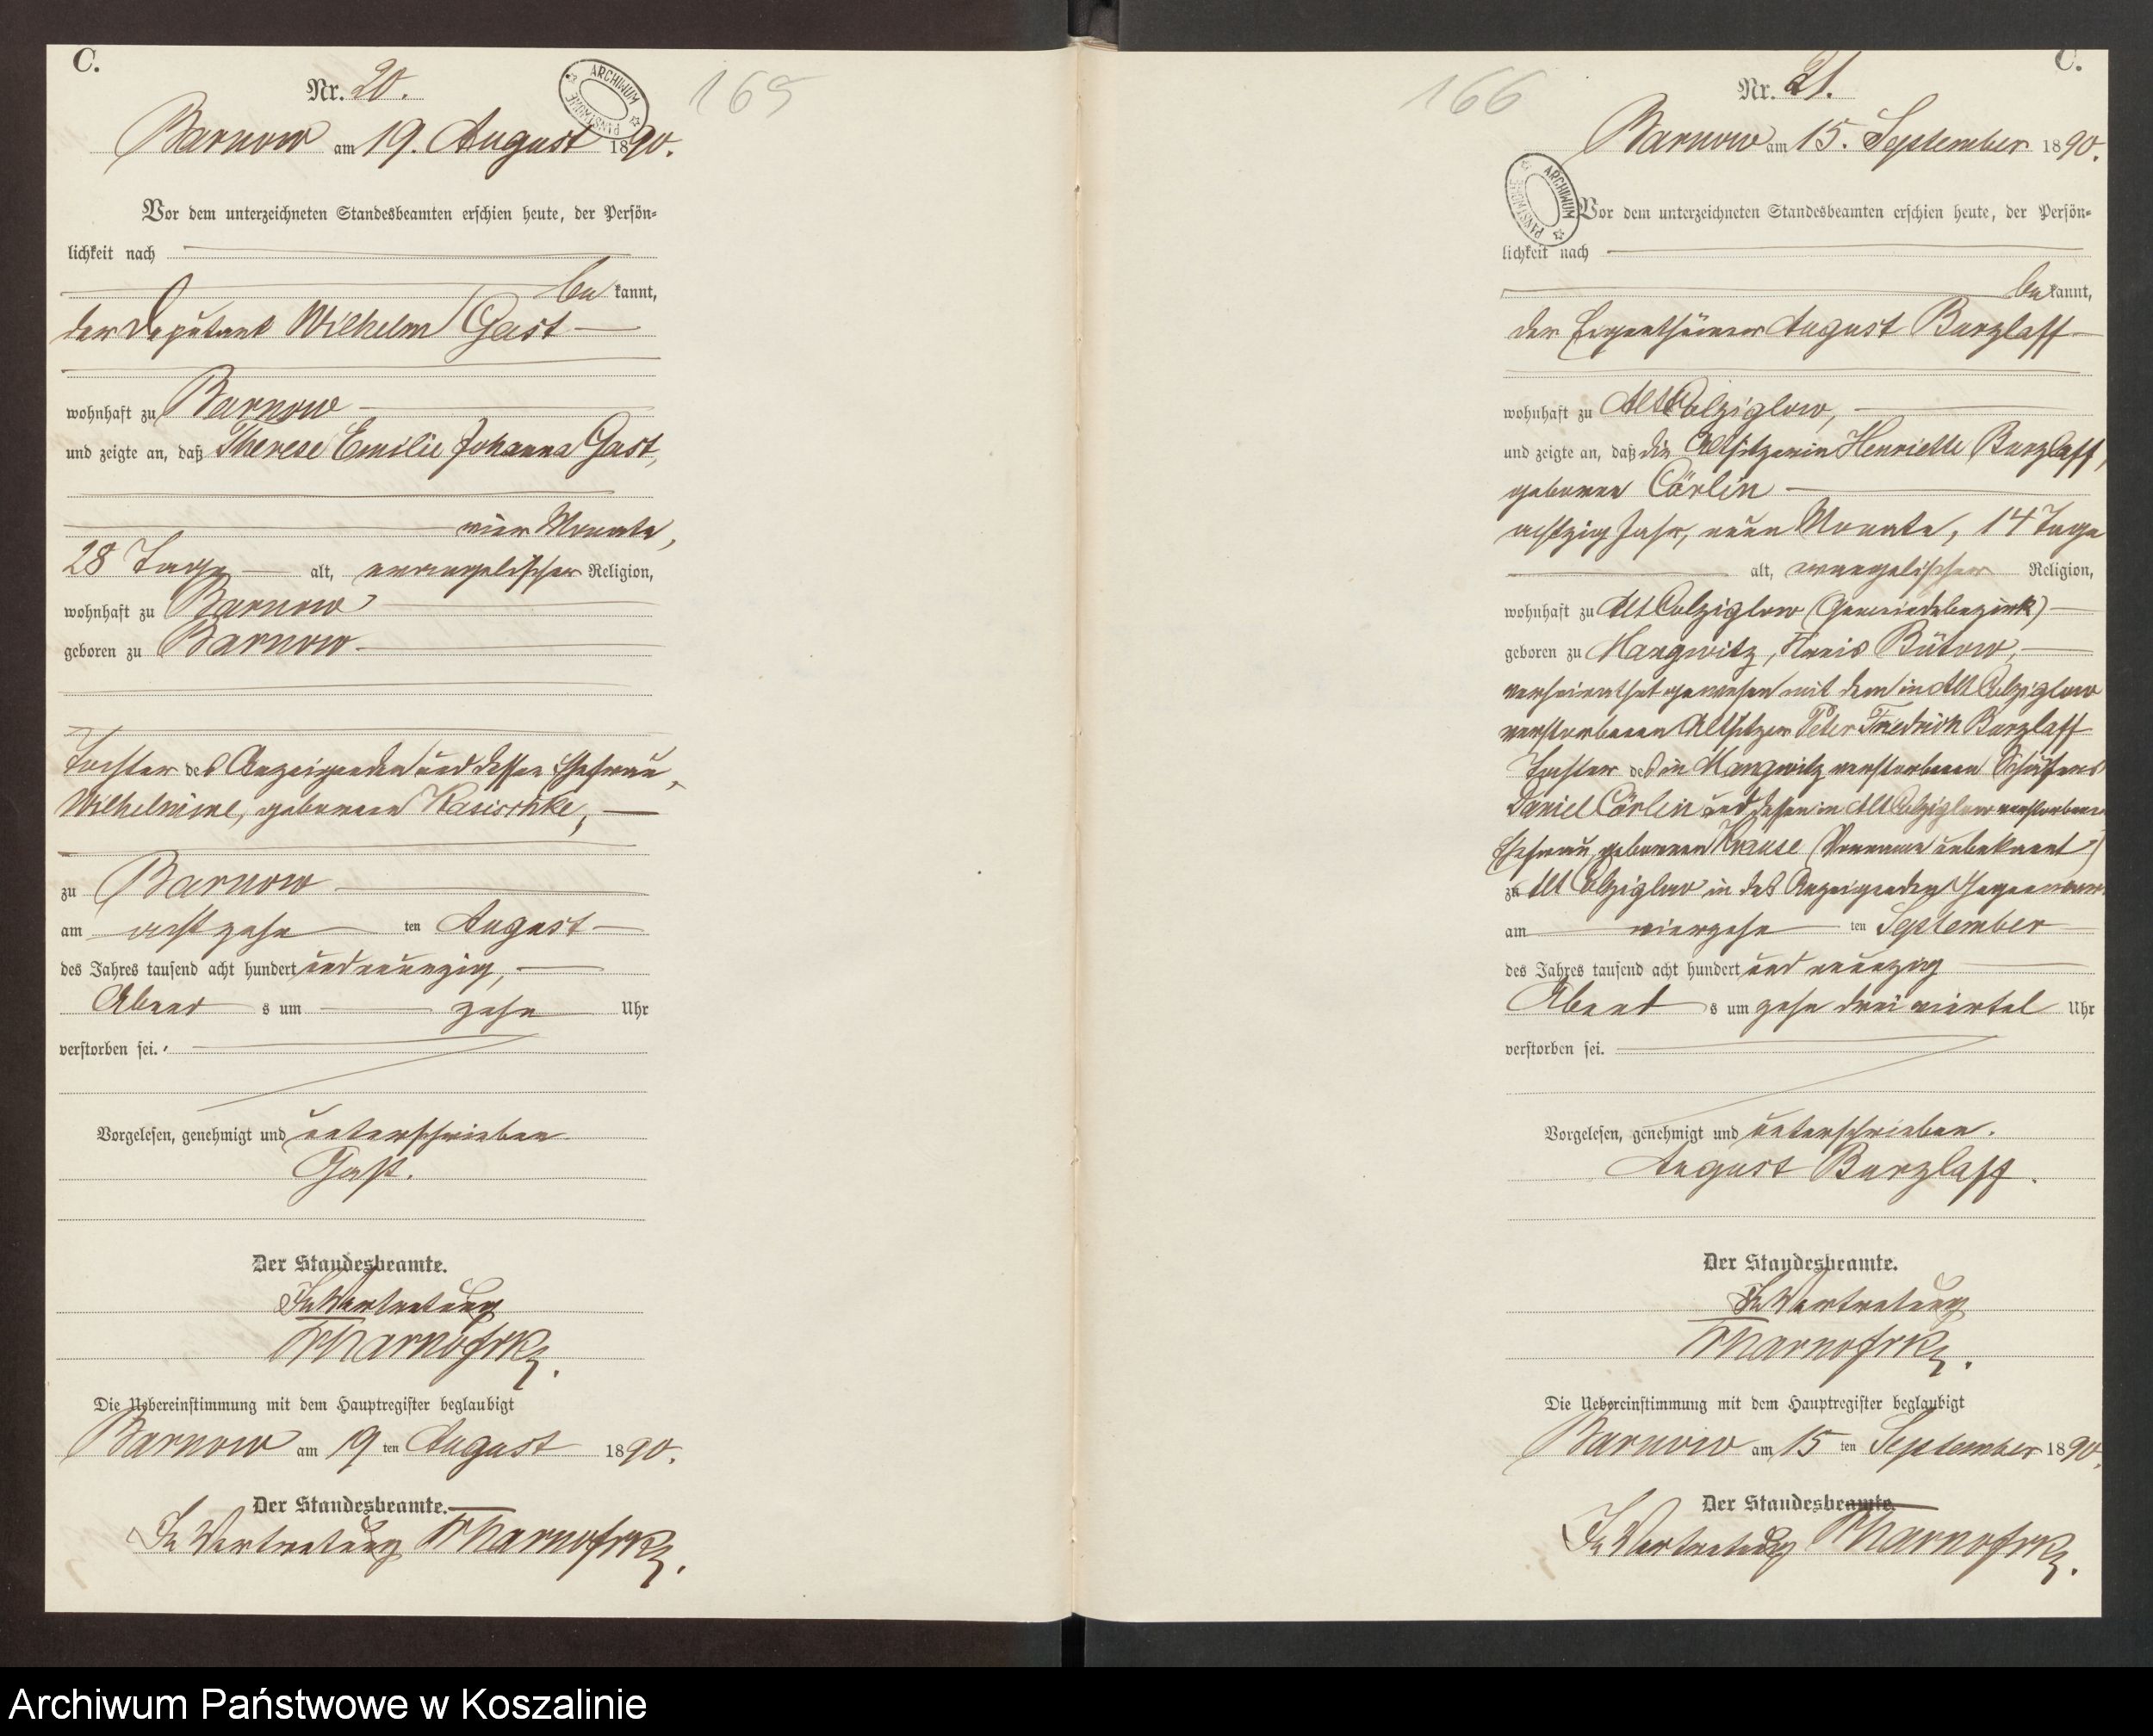 C.
Nr. 20.
165
ARCHIWUM PAŃSTWOWE
Barnow am 19. August 1890.
Vor dem unterzeichneten Standesbeamten erschien heute, der Persön-
lichkeit nach
be kannt,
der Deputant Wilhelm Gast
wohnhaft zu Barnow
und zeigte an, daß Therese Emilie Johanna Gast,
vier Monate,
28 Tage alt, evangelischer Religion,
wohnhaft zu Barnow
geboren zu Barnow
Tochter des Anzeigenden und dessen Ehefrau,
Wilhelmine, geborenen Kasischke,
zu Barnow
am achtzehn ten August
des Jahres tausend acht hundert und neunzig,
Abend s um zehn Uhr
verstorben sei.
Vorgelesen, genehmigt und unterschrieben
Gast.
Der Standesbeamte.
In Vertretung
Die Uebereinstimmung mit dem Hauptregister beglaubigt
Barnow am 19 ten August 1890.
Der Standesbeamte.
In Vertretung
C.
Nr. 21.
166
Barnow am 15. September 1890.
ARCHIWUM PAŃSTWOWE
Vor dem unterzeichneten Standesbeamten erschien heute, der Persön-
lichkeit nach
be kannt,
der Eigenthümer August Barzlaff
wohnhaft zu Alt Colziglow,
und zeigte an, daß die Altsitzerin Henriette Barzlaff,
geborene Cörlin
achtzig Jahr, neun Monate, 14 Tage
alt, evangelischer Religion,
wohnhaft zu Alt Colziglow (Gemeindebezirk)
geboren zu Mangwitz, Kreis Bütow,
verheirathet gewesen mit dem in Alt Colziglow
verstorbenen Altsitzer Peter Friedrich Barzlaff
Tochter des in Mangwitz verstorbenen Schäfers
Daniel Cörlin und dessen in Alt Colziglow verstorbenen
Ehefrau, geborenen Krause (Vorname unbekannt)
zu Alt Colziglow in des Anzeigenden Gegenwart
am vierzehn ten September
des Jahres tausend acht hundert und neunzig
Abend s um zehn dreiviertel Uhr
verstorben sei.
Vorgelesen, genehmigt und unterschrieben.
August Barzlaff.
Der Standesbeamte.
In Vertretung
Die Uebereinstimmung mit dem Hauptregister beglaubigt
Barnow am 15 ten September 1890.
Der Standesbeamte.
In Vertretung
Archiwum Państwowe w Koszalinie